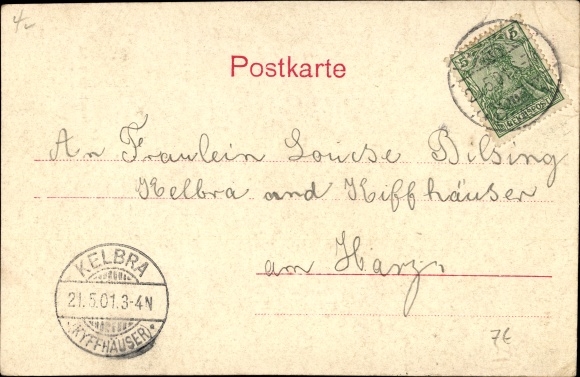 4/-
Postkarte
5 5
REICHSPOST
An Fraulein Louise Bilsing
Kelbra and Kiffhäuser
am Harz
KELBRA
21.5.01.3-4N
*(KYFFHÄUSER)*
7E